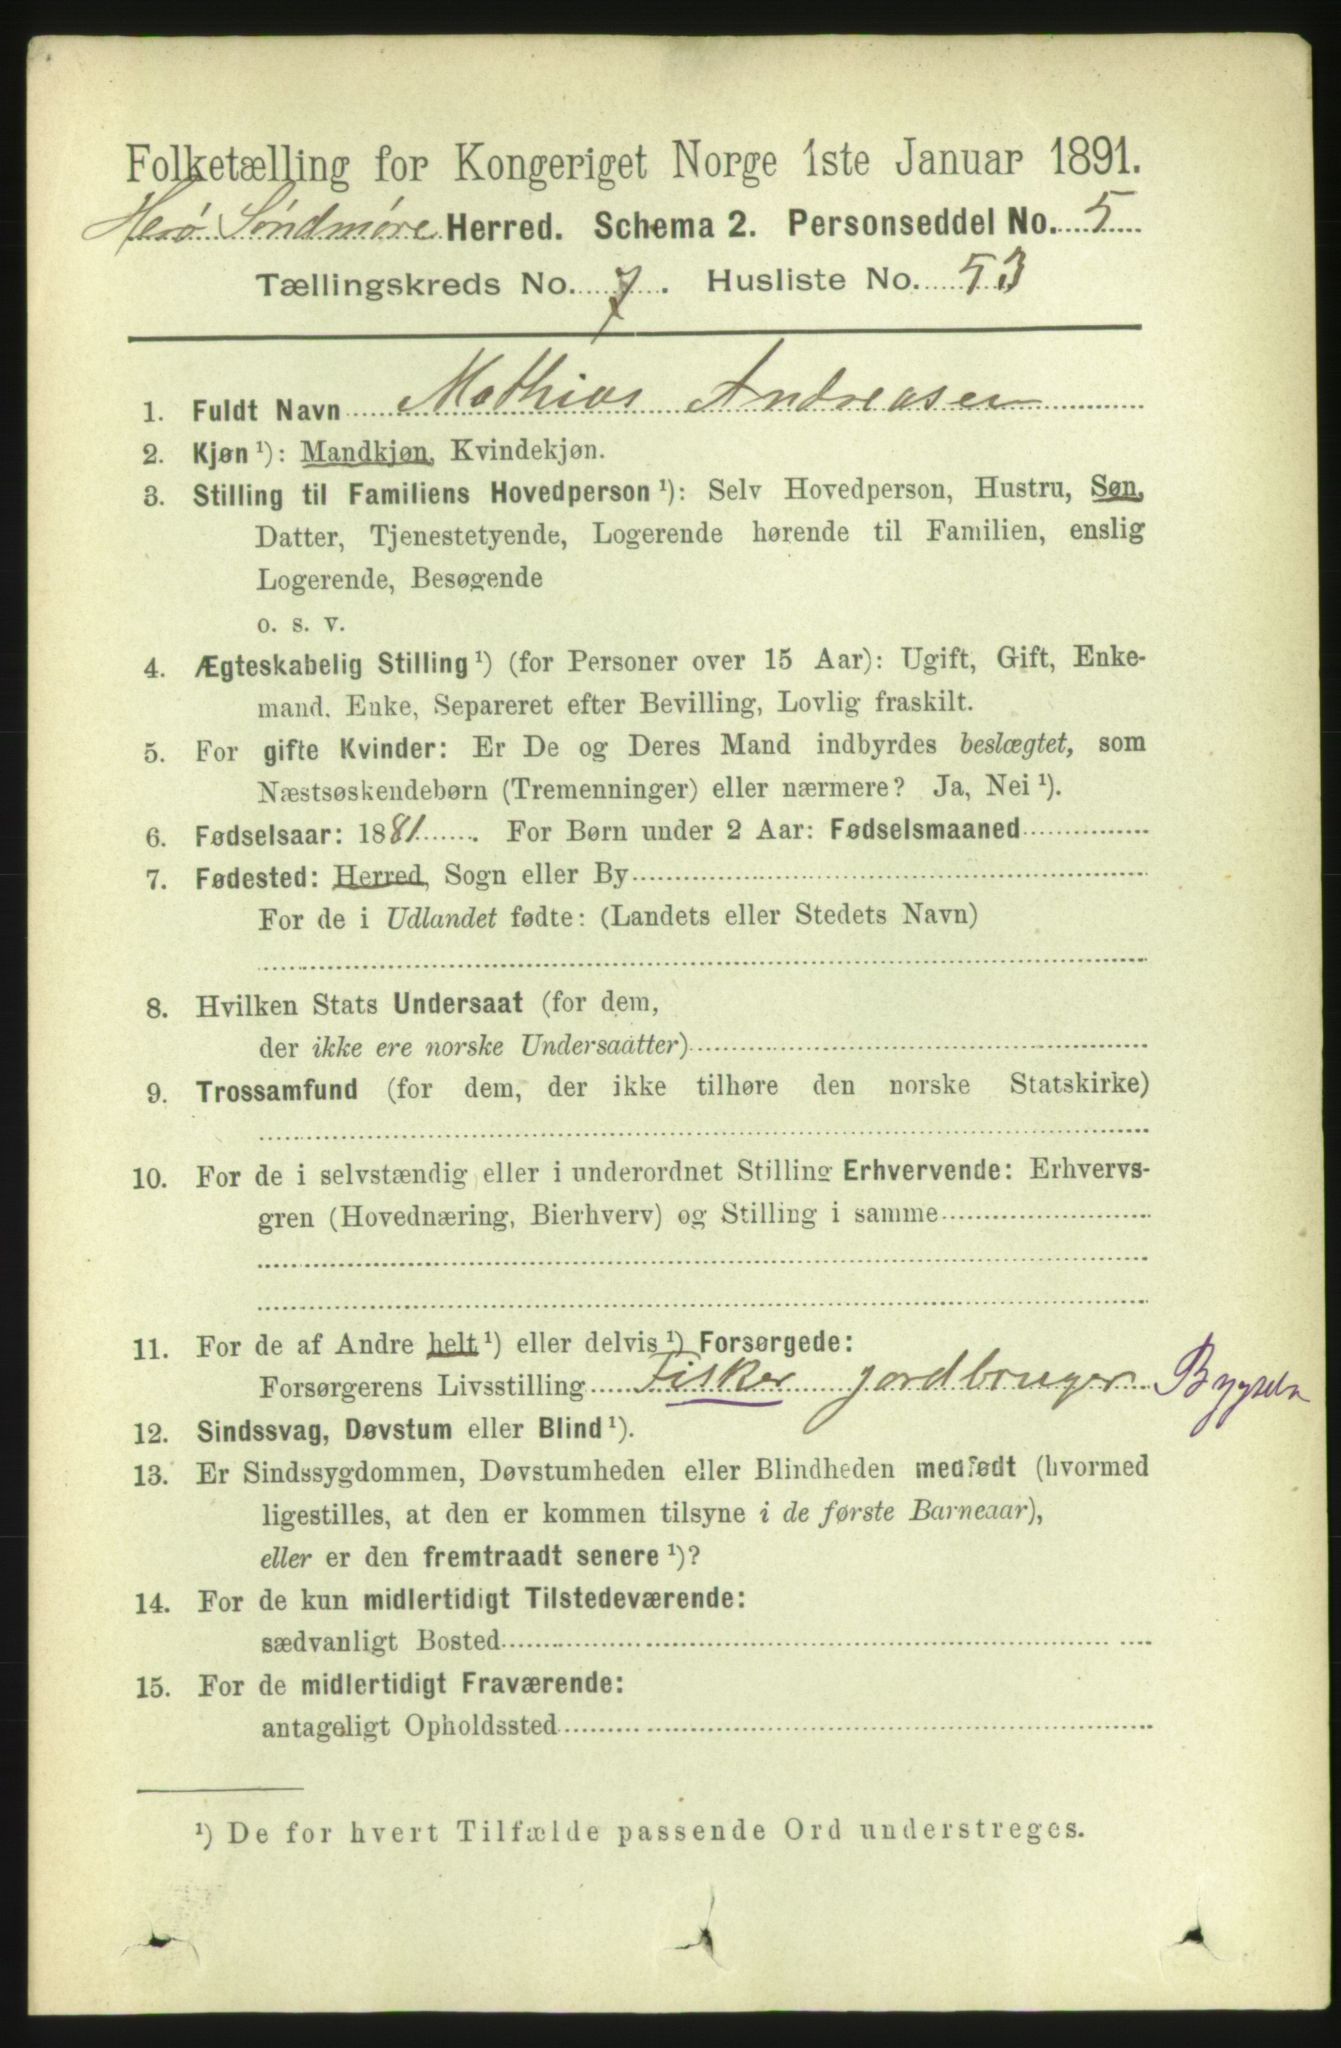 Folketælling for Kongeriget Norge 1ste Januar 1891.
Herø Søndmøre Herred. Schema 2. Personseddel No. 5
Tællingskreds No. 7. Husliste No. 53
1. Fuldt Navn Mathias Andreasen
2. Kjøn ¹): Mandkjøn, Kvindekjøn.
3. Stilling til Familiens Hovedperson ¹): Selv Hovedperson, Hustru, Søn,
Datter, Tjenestetyende, Logerende hørende til Familien, enslig
Logerende, Besøgende
o. s. v.
4. Ægteskabelig Stilling ¹) (for Personer over 15 Aar): Ugift, Gift, Enke-
mand, Enke, Separeret efter Bevilling, Lovlig fraskilt.
5. For gifte Kvinder: Er De og Deres Mand indbyrdes beslægtet, som
Næstsøskendebørn (Tremenninger) eller nærmere? Ja, Nei ¹).
6. Fødselsaar: 1881. For Børn under 2 Aar: Fødselsmaaned
7. Fødested: Herred, Sogn eller By
For de i Udlandet fødte: (Landets eller Stedets Navn)
8. Hvilken Stats Undersaat (for dem,
der ikke ere norske Undersaatter)
9. Trossamfund (for dem, der ikke tilhøre den norske Statskirke)
10. For de i selvstændig eller i underordnet Stilling Erhvervende: Erhvervs-
gren (Hovednæring, Bierhverv) og Stilling i samme
11. For de af Andre helt ¹) eller delvis ¹) Forsørgede:
Forsørgerens Livsstilling Fisker jordbruger Bygseln
12. Sindssvag, Døvstum eller Blind ¹).
13. Er Sindssygdommen, Døvstumheden eller Blindheden medfødt (hvormed
ligestilles, at den er kommen tilsyne i de første Barneaar),
eller er den fremtraadt senere ¹)?
14. For de kun midlertidigt Tilstedeværende:
sædvanligt Bosted
15. For de midlertidigt Fraværende:
antageligt Opholdssted
¹) De for hvert Tilfælde passende Ord understreges.